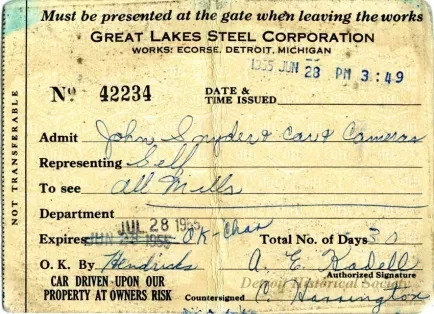 Must be presented at the gate when leaving the works
GREAT LAKES STEEL CORPORATION
WORKS: ECORSE, DETROIT, MICHIGAN
1955 JUN 28 PM 3:49
No 42234 DATE & TIME ISSUED
NOT TRANSFERABLE
Admit John Snyder & Car & Cameras
Representing Self
To see All Mills
Department
JUL 28 1955
Expires JUN 28 1955 OK - Total No. of Days 30
O. K. By Hendricks A. E. Radell
Authorized Signature
CAR DRIVEN UPON OUR
PROPERTY AT OWNERS RISK
Detroit Historical Society
Countersigned C. Harrington